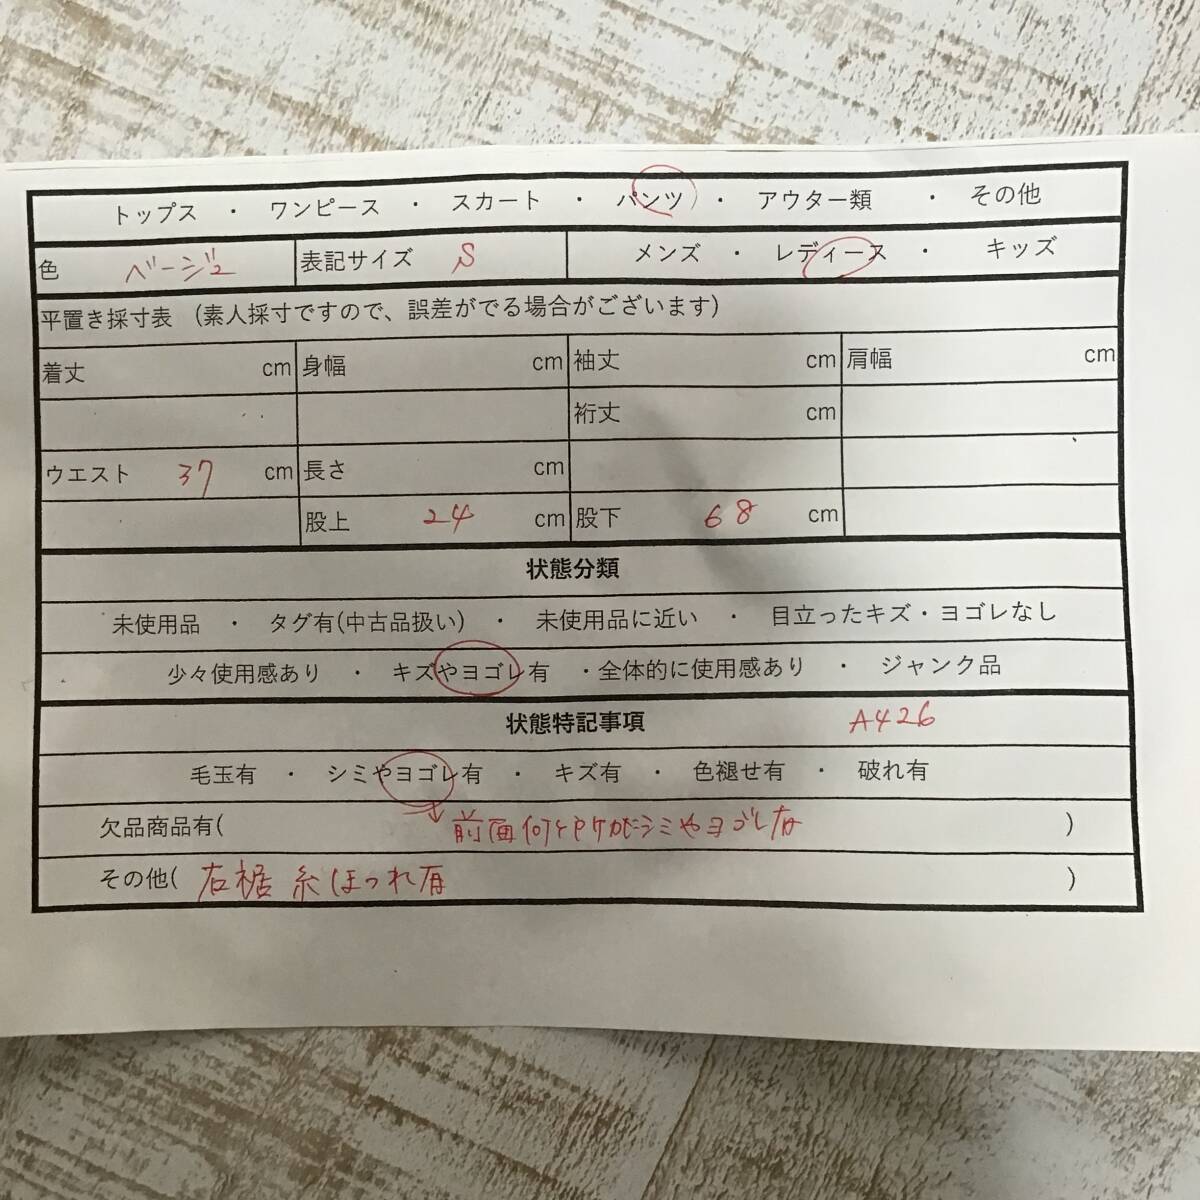 トップス ・ ワンピース ・ スカート ・ パンツ ・ アウター類 ・ その他
色 ベージュ 表記サイズ S メンズ ・ レディース ・ キッズ
平置き採寸表 (素人採寸ですので、誤差がでる場合がございます)
着丈 cm 身幅 cm 袖丈 cm 肩幅 cm
裄丈 cm
ウエスト 37 cm 長さ cm
股上 24 cm 股下 68 cm
状態分類
未使用品 ・ タグ有(中古品扱い) ・ 未使用品に近い ・ 目立ったキズ・ヨゴレなし
少々使用感あり ・ キズやヨゴレ有 ・全体的に使用感あり ・ ジャンク品
状態特記事項 A426
毛玉有 ・ シミやヨゴレ有 ・ キズ有 ・ 色褪せ有 ・ 破れ有
欠品商品有( 前面何ヶ所かにシミやヨゴレ有 )
その他( 右裾 糸ほつれ有 )